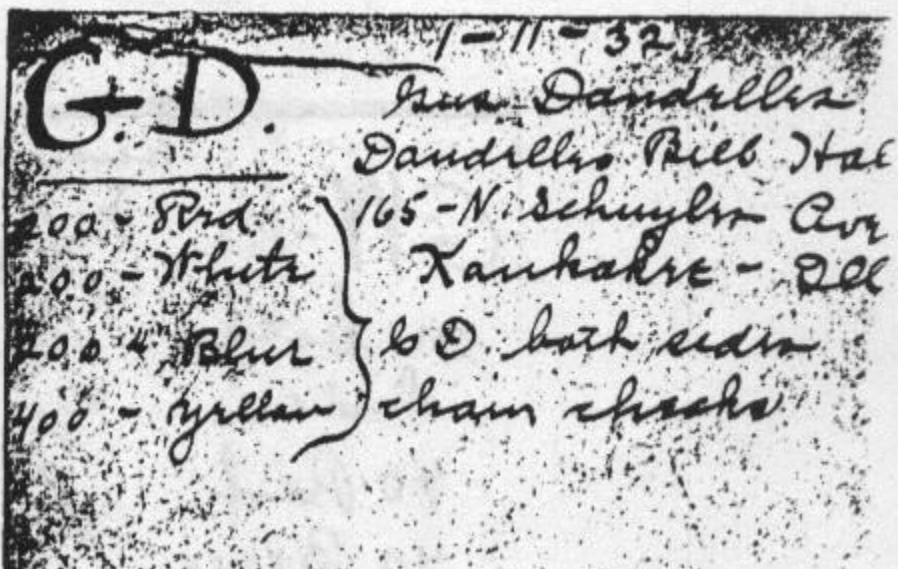 1-11-32
G.D.
Gus Dandelles
Dandelles Bill Hal
165-N. Schuyler Ave
Kankakee - Ill
200 - Red
200 - White
200 " Blue
400 - Yellow
GD. both sides
chain checks